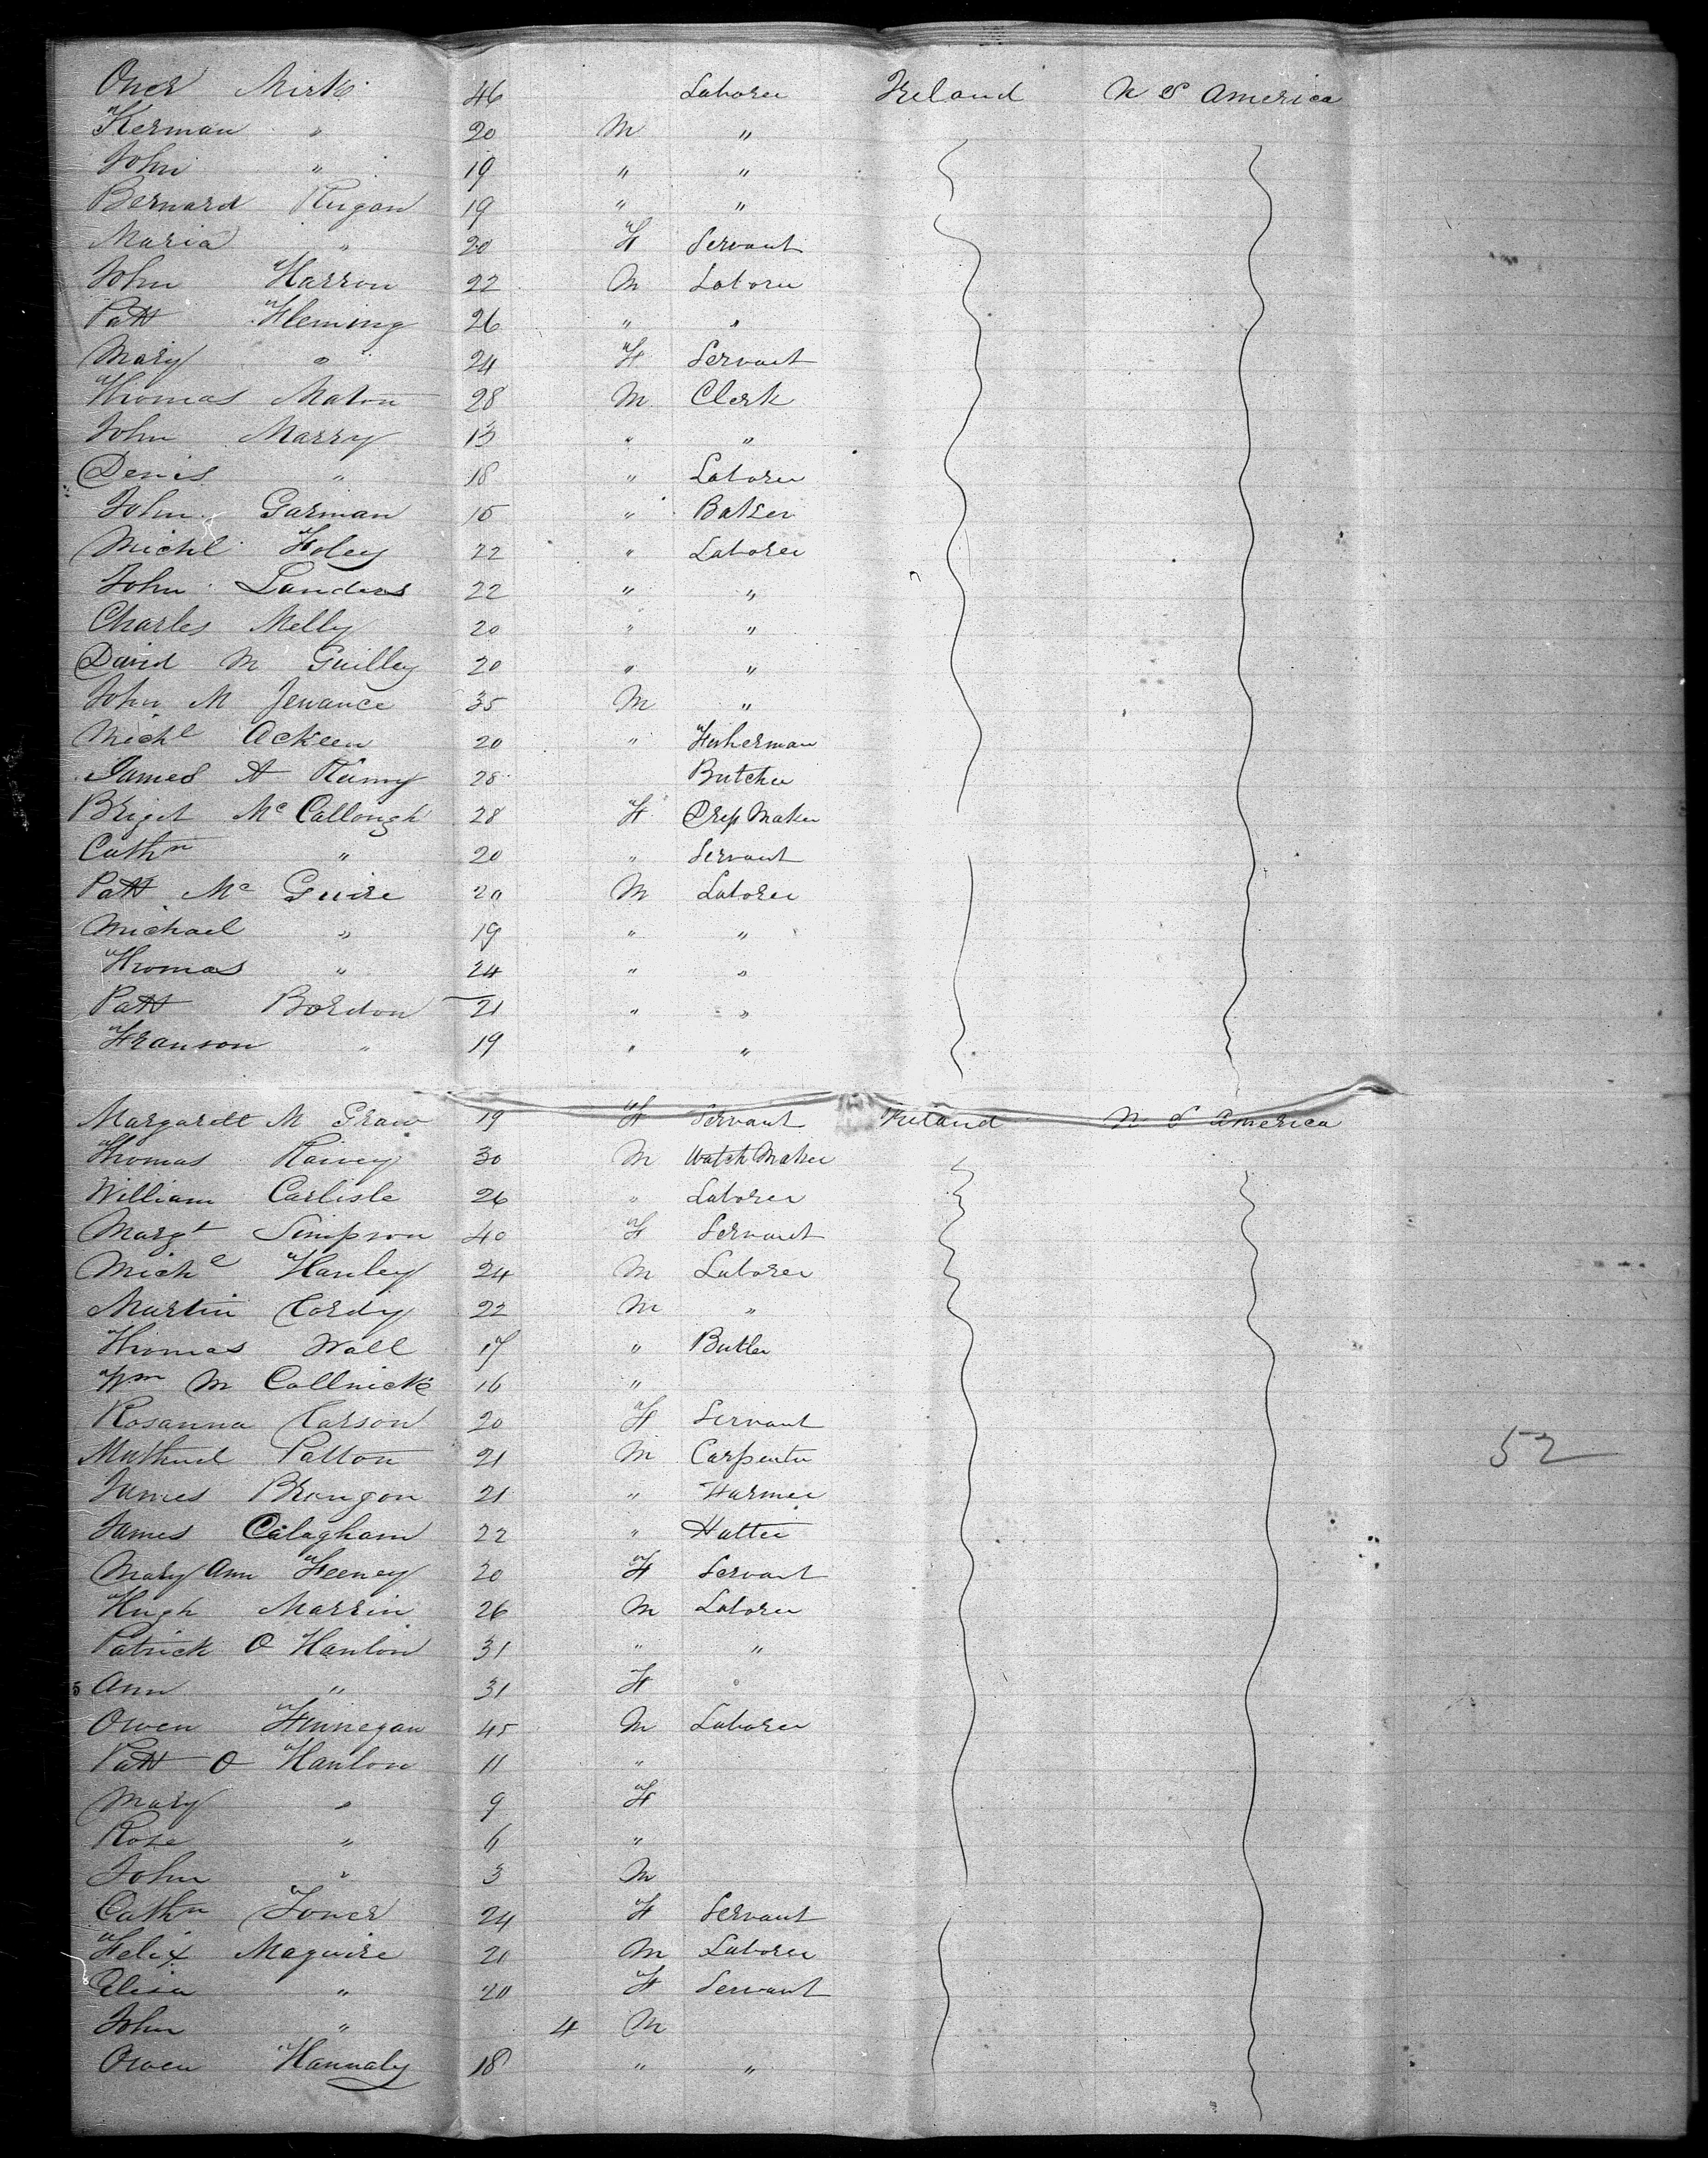 Oner Mirk 46 Laborer Ireland N S America
Herman " 20 M "
John " 19 " "
Bernard Rugan 19 " "
Maria " 20 F Servant
John Harron 22 M Laborer
Patt Fleming 26 " "
Mary " 24 F Servant
Thomas Maton 28 M Clerk
John Marry 13 " "
Denis " 18 " Laborer
John Garman 15 " Baker
Michl Foley 22 " Laborer
John Landers 22 " "
Charles Melly 20 " "
David M Guilley 20 " "
John M Jenance 35 M "
Michl Ackeen 20 " Fisherman
James A 28 Butcher
Briget Mc Callough 28 F Dress Maker
Cathn " 20 " Servant
Patt Mc Guire 20 M Laborer
Michael " 19 " "
Thomas " 24 " "
Patt Bordon 21 " "
Franson " 19 " "
Margarett M Graw 19 F Servant Ireland N S America
Thomas Harvey 30 M Watch Maker
William Carlisle 26 " Laborer
Margt Simpson 40 F Servant
Michl Hanley 24 M Laborer
Martin Cordy 22 M "
Thomas Wall 17 " Butler
Wm M Collnick 16 "
Rosanna Carson 20 F Servant
Patton 21 M Carpenter
James Brangon 21 " Farmer
James Calagham 22 " Hatter
Mary Ann Feeney 20 F Servant
Hugh Marrin 26 M Laborer
Patrick O Hanlon 31 " "
5 Ann " 31 F "
Owen Finnegan 45 M Laborer
Patt O Hanlon 11 "
Mary " 9 F
Rose " 6 "
John " 3 M
Cathn Toner 24 F Servant
Felix Maguire 21 M Laborer
Elisa " 20 F Servant
John " 4 M
Owen Hannaly 18 " "
52